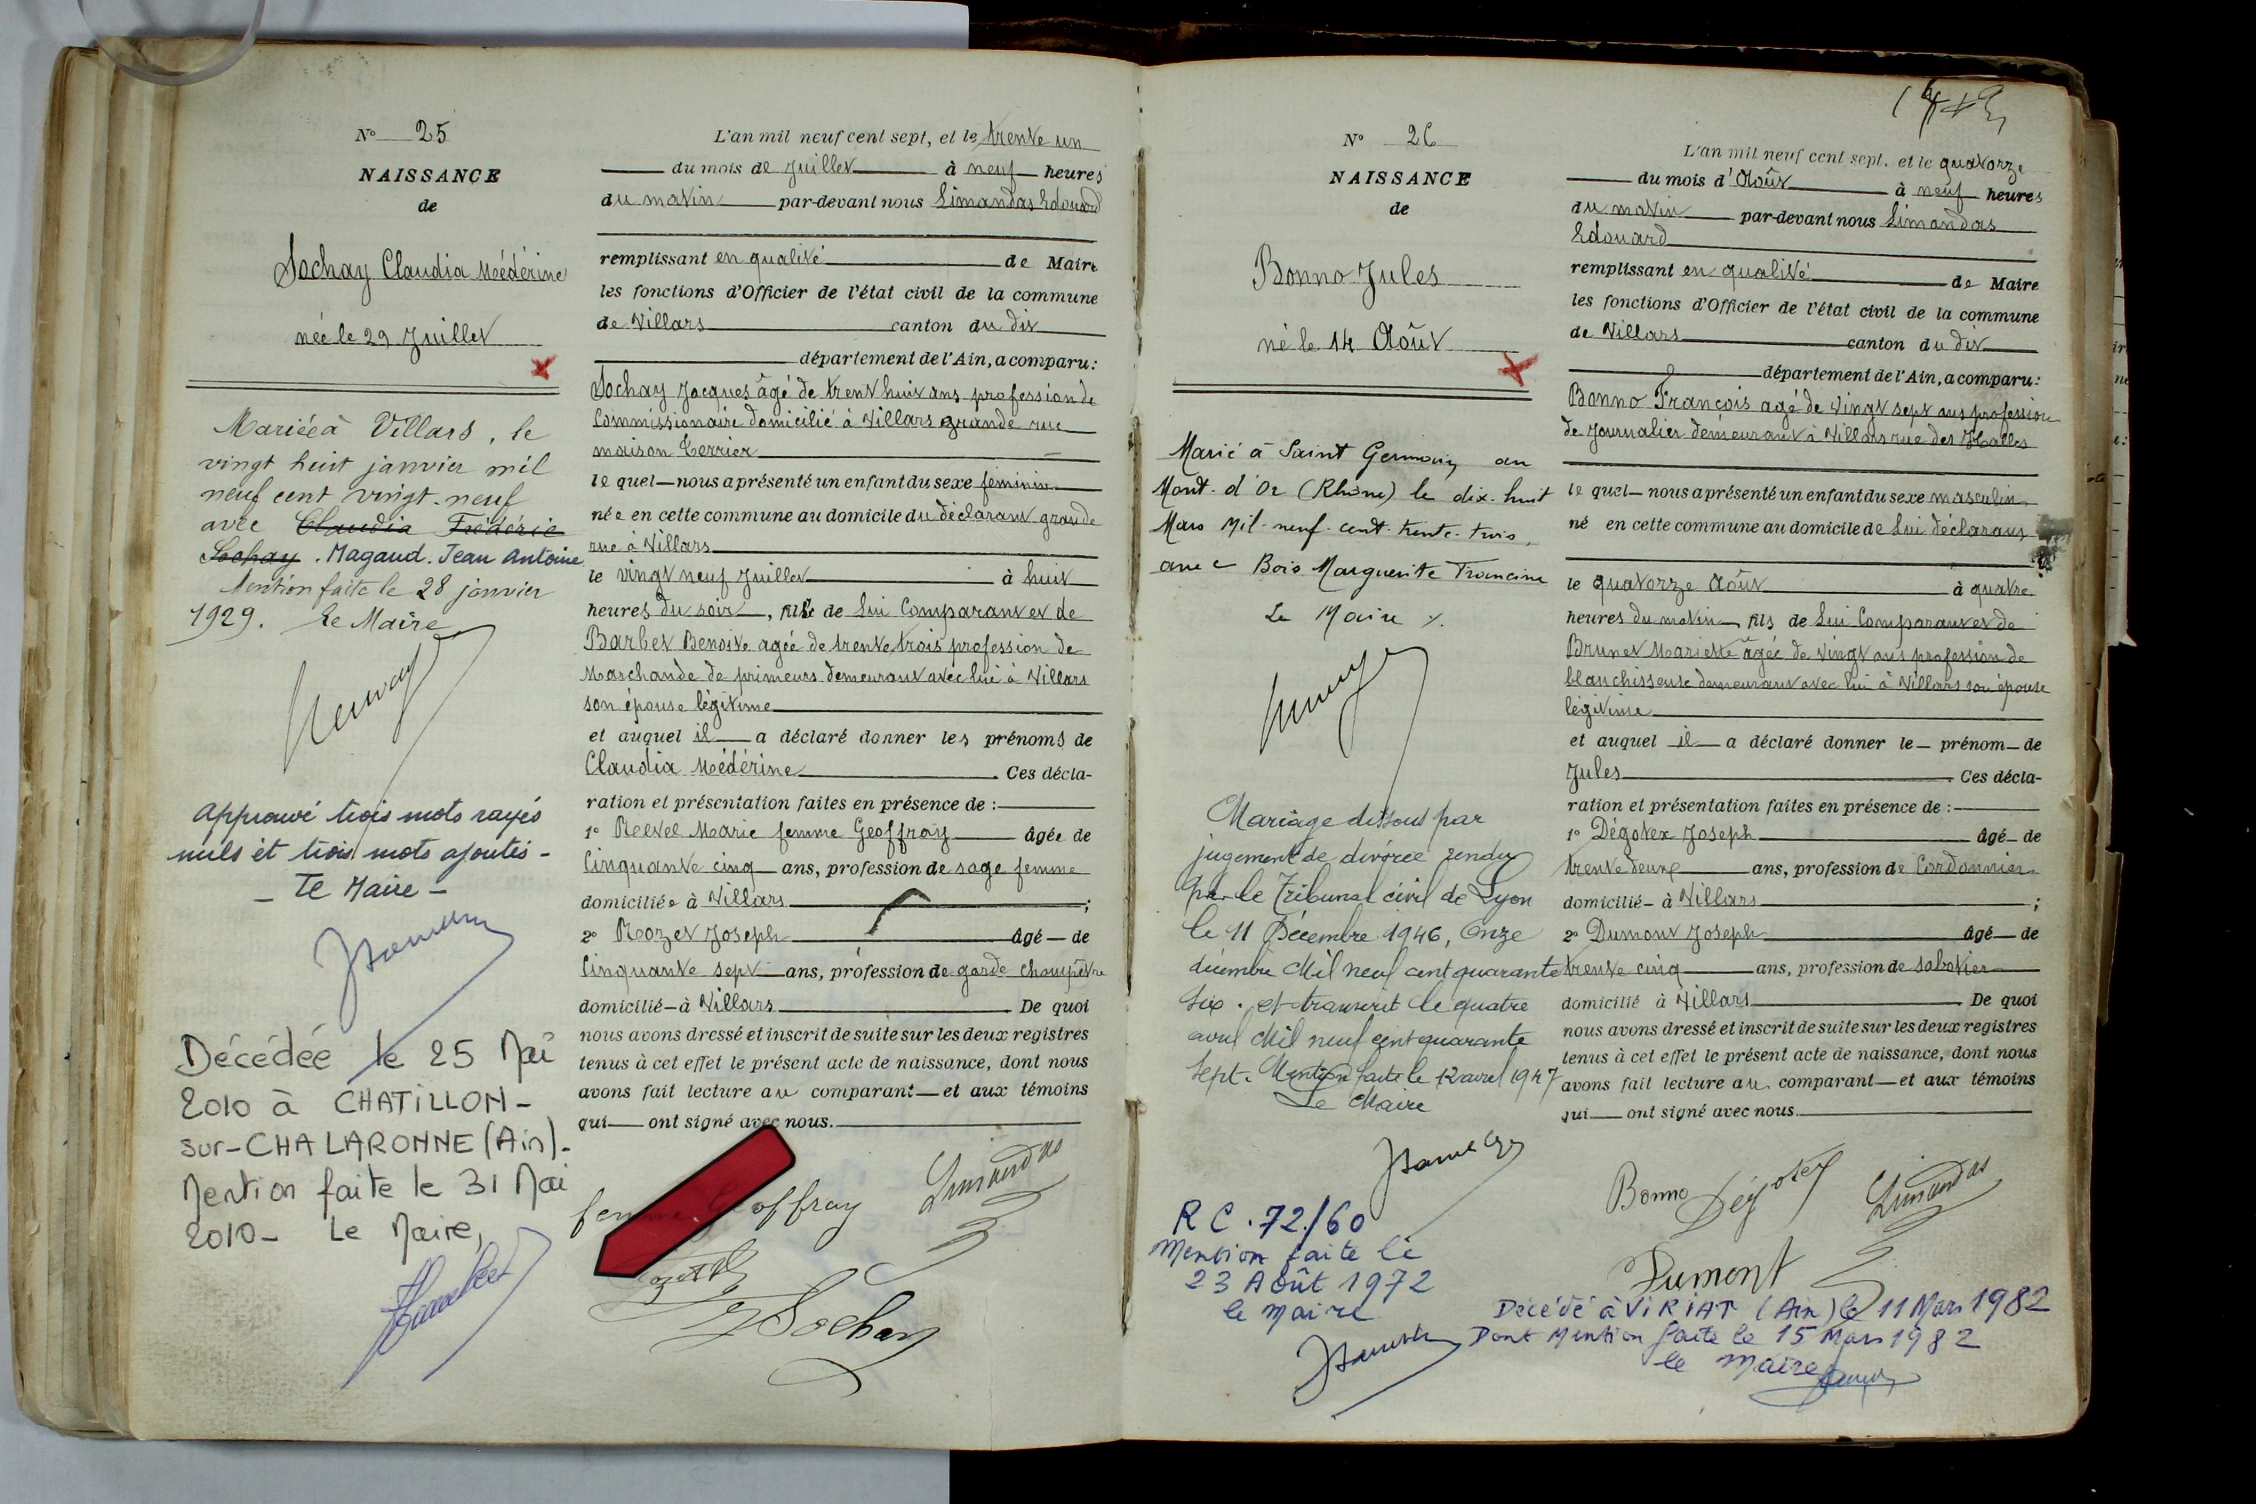 N° 25
NAISSANCE
de
Sochay Claudia Médérine
née le 29 Juillet
Mariée à Villars, le
vingt huit janvier mil
neuf cent vingt-neuf
avec Claudia Frédéric
Sochay. Magaud. Jean Antoine
Mention faite le 28 janvier
1929. Le Maire
approuvé trois mots rayés
nuls et trois mots ajoutés -
- Le Maire -
Décédée le 25 Mai
2010 à CHATILLON-
sur-CHALARONNE (Ain)-
Mention faite le 31 Mai
2010- Le Maire,
L'an mil neuf cent sept, et le trente un
du mois de Juillet à neuf heures
du matin par-devant nous Limandas Edouard
remplissant en qualité de Maire
les fonctions d'Officier de l'état civil de la commune
de Villars canton du dit
département de l'Ain, a comparu:
Sochay Jacques âgé de trent huit ans profession de
Commissionaire domicilié à Villars grande rue
maison Terrier
le quel nous a présenté un enfant du sexe féminin
née en cette commune au domicile du déclarant grande
rue à Villars
le vingt neuf Juillet à huit
heures du soir, fille de Lui Comparant et de
Barbet Benoite agée de trente trois profession de
Marchande de primeurs demeurant avec lui à Villars
son épouse légitime
et auquel il a déclaré donner les prénoms de
Claudia Médérine Ces décla-
ration et présentation faites en présence de :
1° Revel Marie femme Geoffray âgée de
Cinquante cinq ans, profession de sage femme
domiciliée à Villars ;
2° Rozet Joseph âgé de
Cinquante sept ans, profession de garde champêtre
domicilié à Villars De quoi
nous avons dressé et inscrit de suite sur les deux registres
tenus à cet effet le présent acte de naissance, dont nous
avons fait lecture au comparant et aux témoins
qui ont signé avec nous.
femme Geoffray Limandas
Sochay
N° 26
NAISSANCE
de
Bonno Jules
né le 14 Août
Marié à Saint Germain au
Mont-d'Or (Rhône) le dix-huit
Mars Mil-neuf-cent-trente-trois,
avec Bois Marguerite Francine
Le Maire
Mariage dissous par
jugement de divorce rendu
par le Tribunal civil de Lyon
le 11 Décembre 1946, Onze
décembre Mil neuf cent quarante
six. et transcrit le quatre
avril Mil neuf cent quarante
sept. Mention faite le 12 avril 1947
Le Maire
R C . 72/60
Mention faite le
23 Août 1972
le maire
L'an mil neuf cent sept, et le quatorze
du mois d'Août à neuf heures
du matin par-devant nous Limandas
Edouard
remplissant en qualité de Maire
les fonctions d'Officier de l'état civil de la commune
de Villars canton du dit
département de l'Ain, a comparu:
Bonno François agé de vingt sept ans profession
de Journalier demeurant à Villars rue des Halles
le quel nous a présenté un enfant du sexe masculin
né en cette commune au domicile de Lui déclarant
le quatorze Août à quatre
heures du matin, fils de Lui Comparant et de
Brunet Mariette âgée de vingt ans profession de
blanchisseuse demeurant avec lui à Villars son épouse
légitime
et auquel il a déclaré donner le prénom de
Jules Ces décla-
ration et présentation faites en présence de :
1° Dégotex Joseph âgé de
trente deux ans, profession de Cordonnier
domicilié à Villars ;
2° Dumont Joseph âgé de
trente cinq ans, profession de sabotier
domicilié à Villars De quoi
nous avons dressé et inscrit de suite sur les deux registres
tenus à cet effet le présent acte de naissance, dont nous
avons fait lecture au comparant et aux témoins
qui ont signé avec nous.
Bonno Dégotex Limandas
Dumont
Décédé à VIRIAT (Ain) le 11 Mars 1982
Dont Mention faite le 15 Mars 1982
le maire